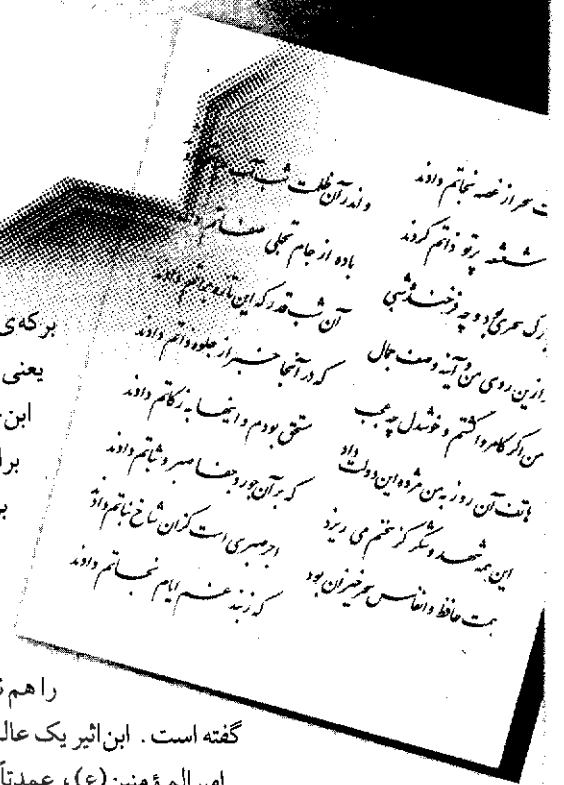 ت سحر از غصه نجاتم دادند
و ندر آن ظلمت شب آب
شعشعه پرتو ذاتم کردند
باده از جام تجلی صفاتم
رک سحری بود و چه فرخنده شبی
آن شب قدر که این تازه براتم دادند
ازین روی من و آینه وصف جمال
که در آنجا خبر از جلوه ذاتم دادند
من اگر کامروا گشتم و خوشدل چه عجب
مستحق بودم و اینها به زکاتم دادند
هاتف آن روز به من مژده این دولت داد
که بر آن جور و جفا صبر و ثباتم دادند
این همه شهد و شکر کز سخنم می ریزد
اجر صبری است کزان شاخ نباتم دادند
همت حافظ و انفاس سحرخیزان بود
که ز بند غم ایام نجاتم دادند
برکه‌ی
یعنی
ابن
برا
بر
را هم
گفته است. ابن‌اثیر یک عال
امیرالمؤمنین(ع)، عمدتاً